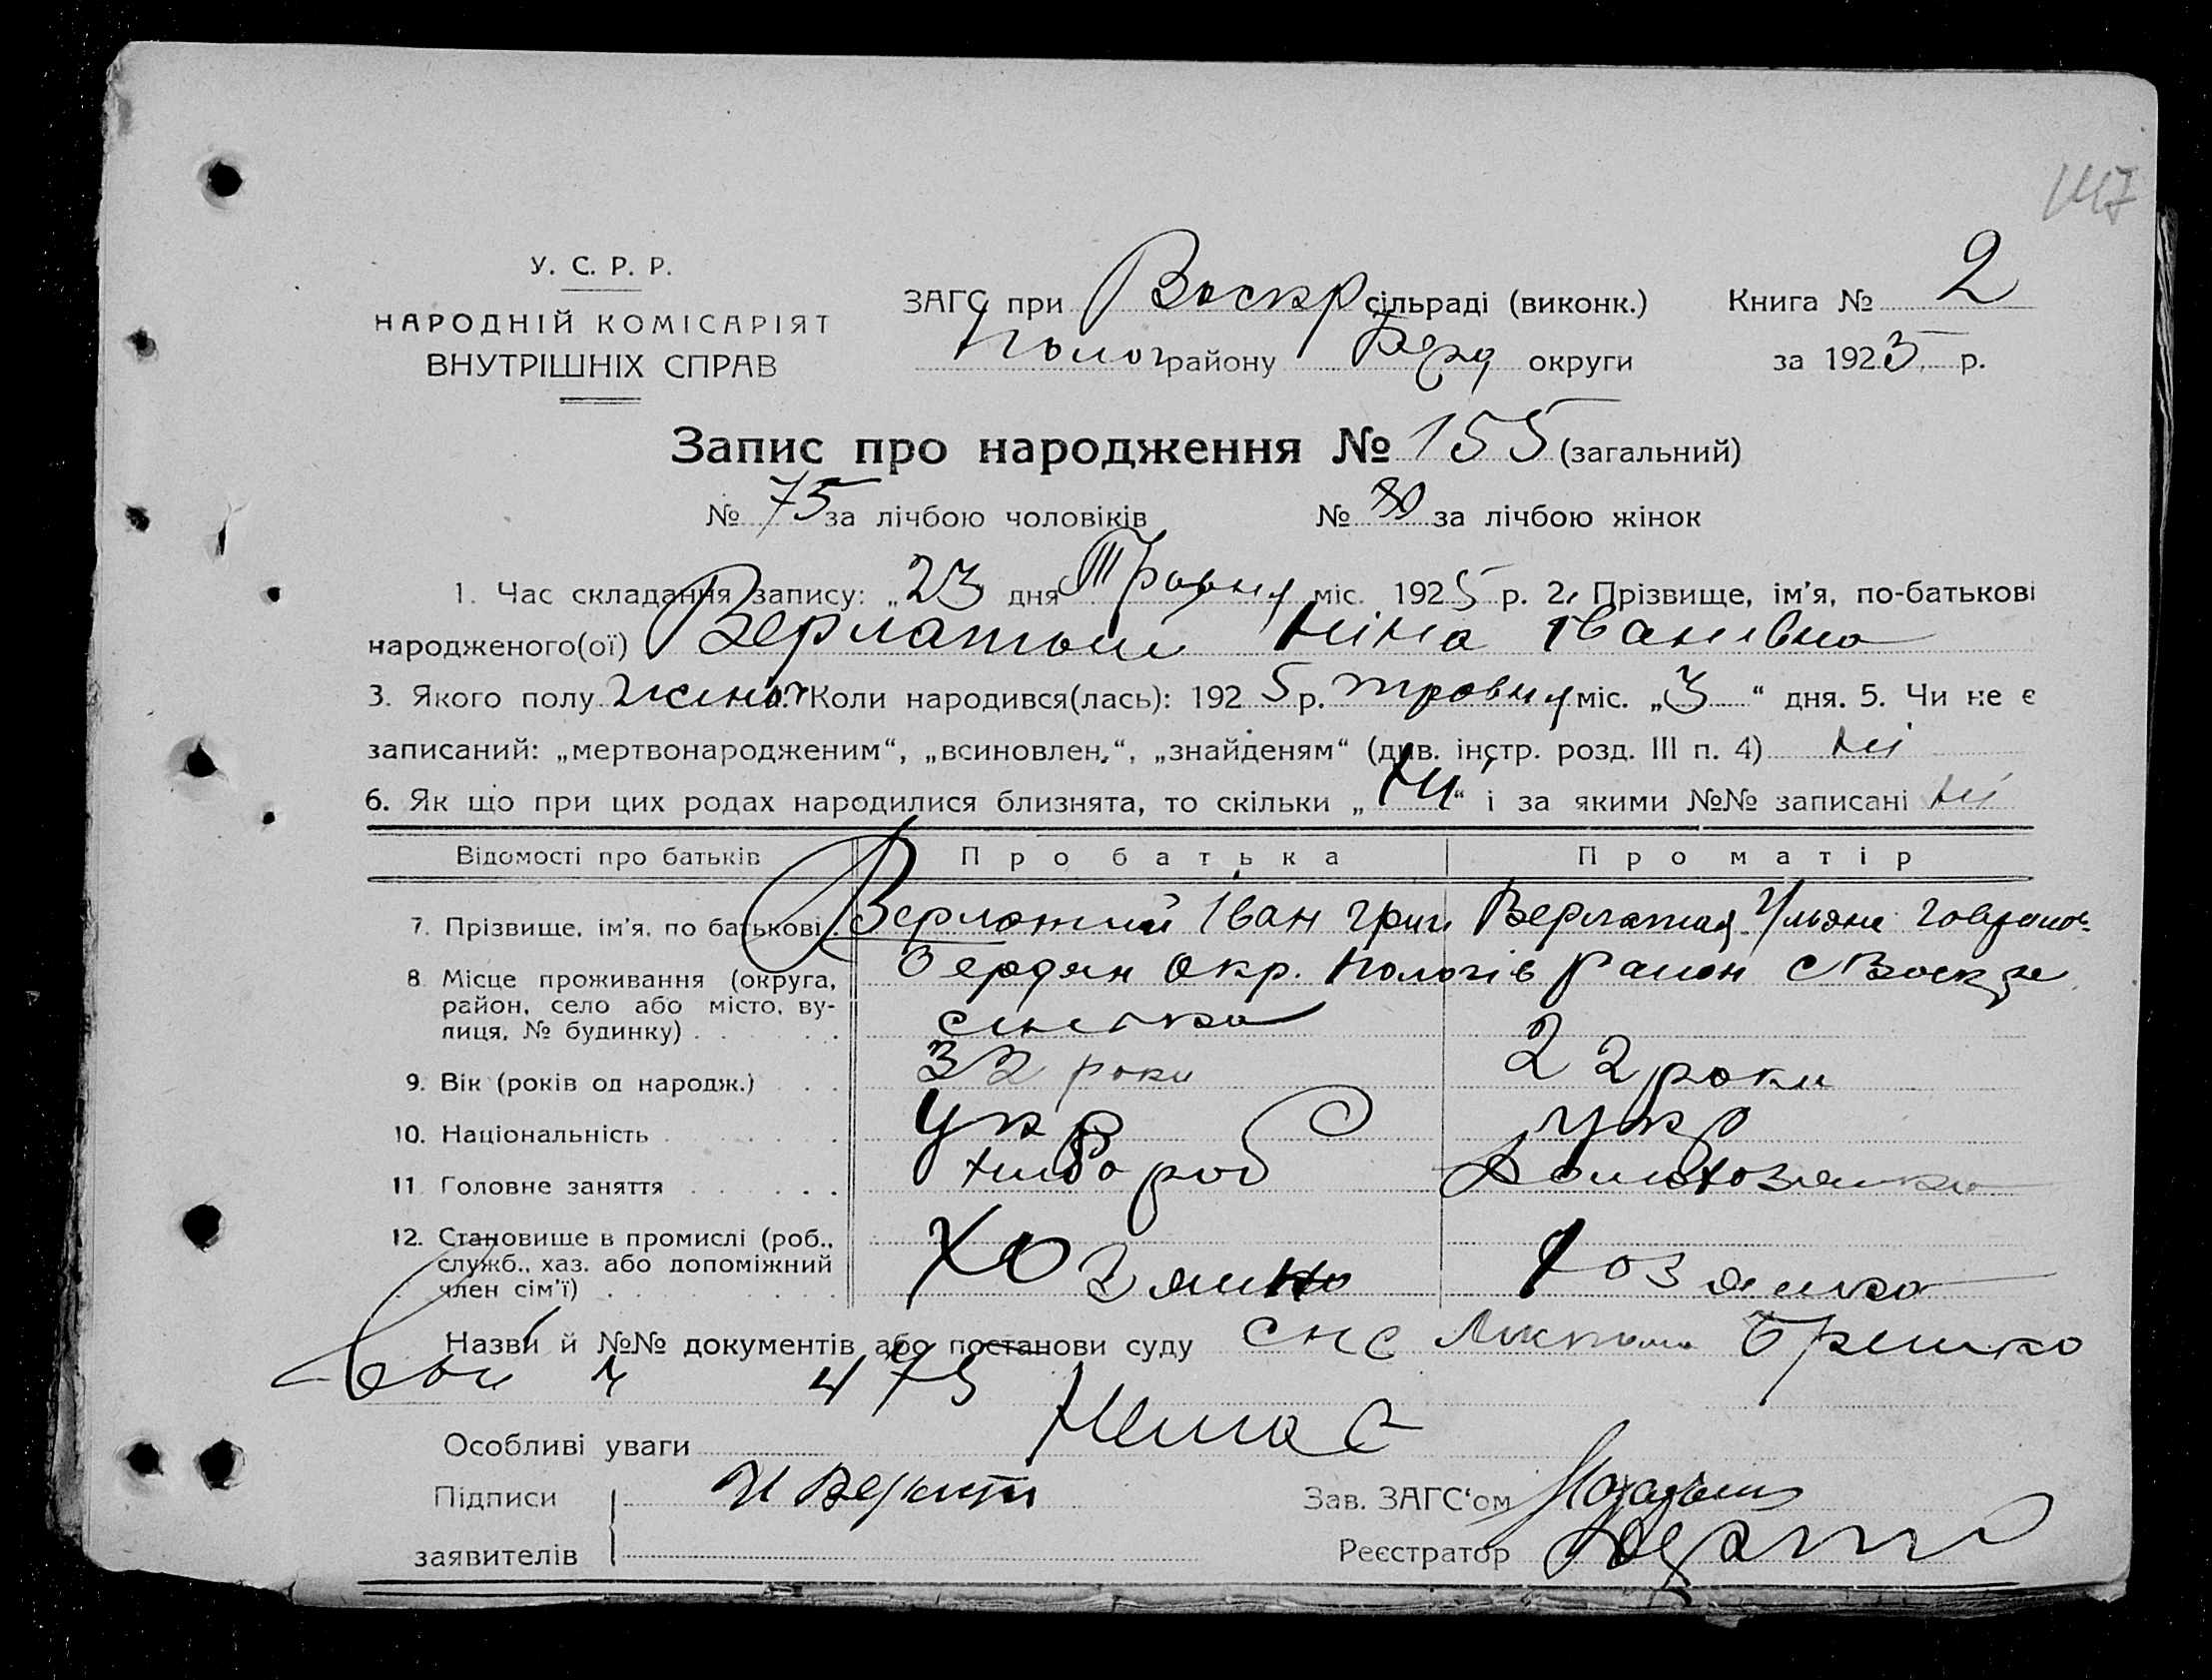 147
У. С. Р. Р.
НАРОДНІЙ КОМІСАРІЯТ
ВНУТРІШНІХ СПРАВ
ЗАГС при Воскр сільраді (виконк.) Книга № 2
Полог району Берд округи за 1925 р.
Запис про народження № 155 (загальний)
№ 75 за лічбою чоловіків № 80 за лічбою жінок
1. Час складання запису: „23 дня Травня міс. 1925 р. 2. Прізвище, ім'я, по-батькові
народженого(ої) Верлатий Ніна Іванівна
3. Якого полу жіно. Коли народився(лась): 1925 р. травня міс. „3“ дня. 5. Чи не є
записаний: „мертвонародженим“, „всиновлен.“, „знайденям“ (див. інстр. розд. III п. 4) ні
6. Як що при цих родах народилися близнята, то скільки „ні“ і за якими №№ записані ні
Відомості про батьків Про батька Про матір
7. Прізвище, ім'я, по батькові. Верлатий Іван Григ Верлатая Ульяна
8. Місце проживання (округа, Бердян Окр. Пологів Район с Воскре
район, село або місто, ву-
лиця, № будинку) сенка
9. Вік (років од народж.) 32 роки 22 роки
10. Національність Укр Укр
11. Головне заняття хлібороб Домхозяйка
12. Становище в промислі (роб.,
служб., хаз. або допоміжний Хозяин хозяйка
член сім'ї)
Назви й №№ документів або постанови суду
475
Особливі уваги Нема
Підписи И Верлати Зав. ЗАГС'ом
заявителів Реєстратор